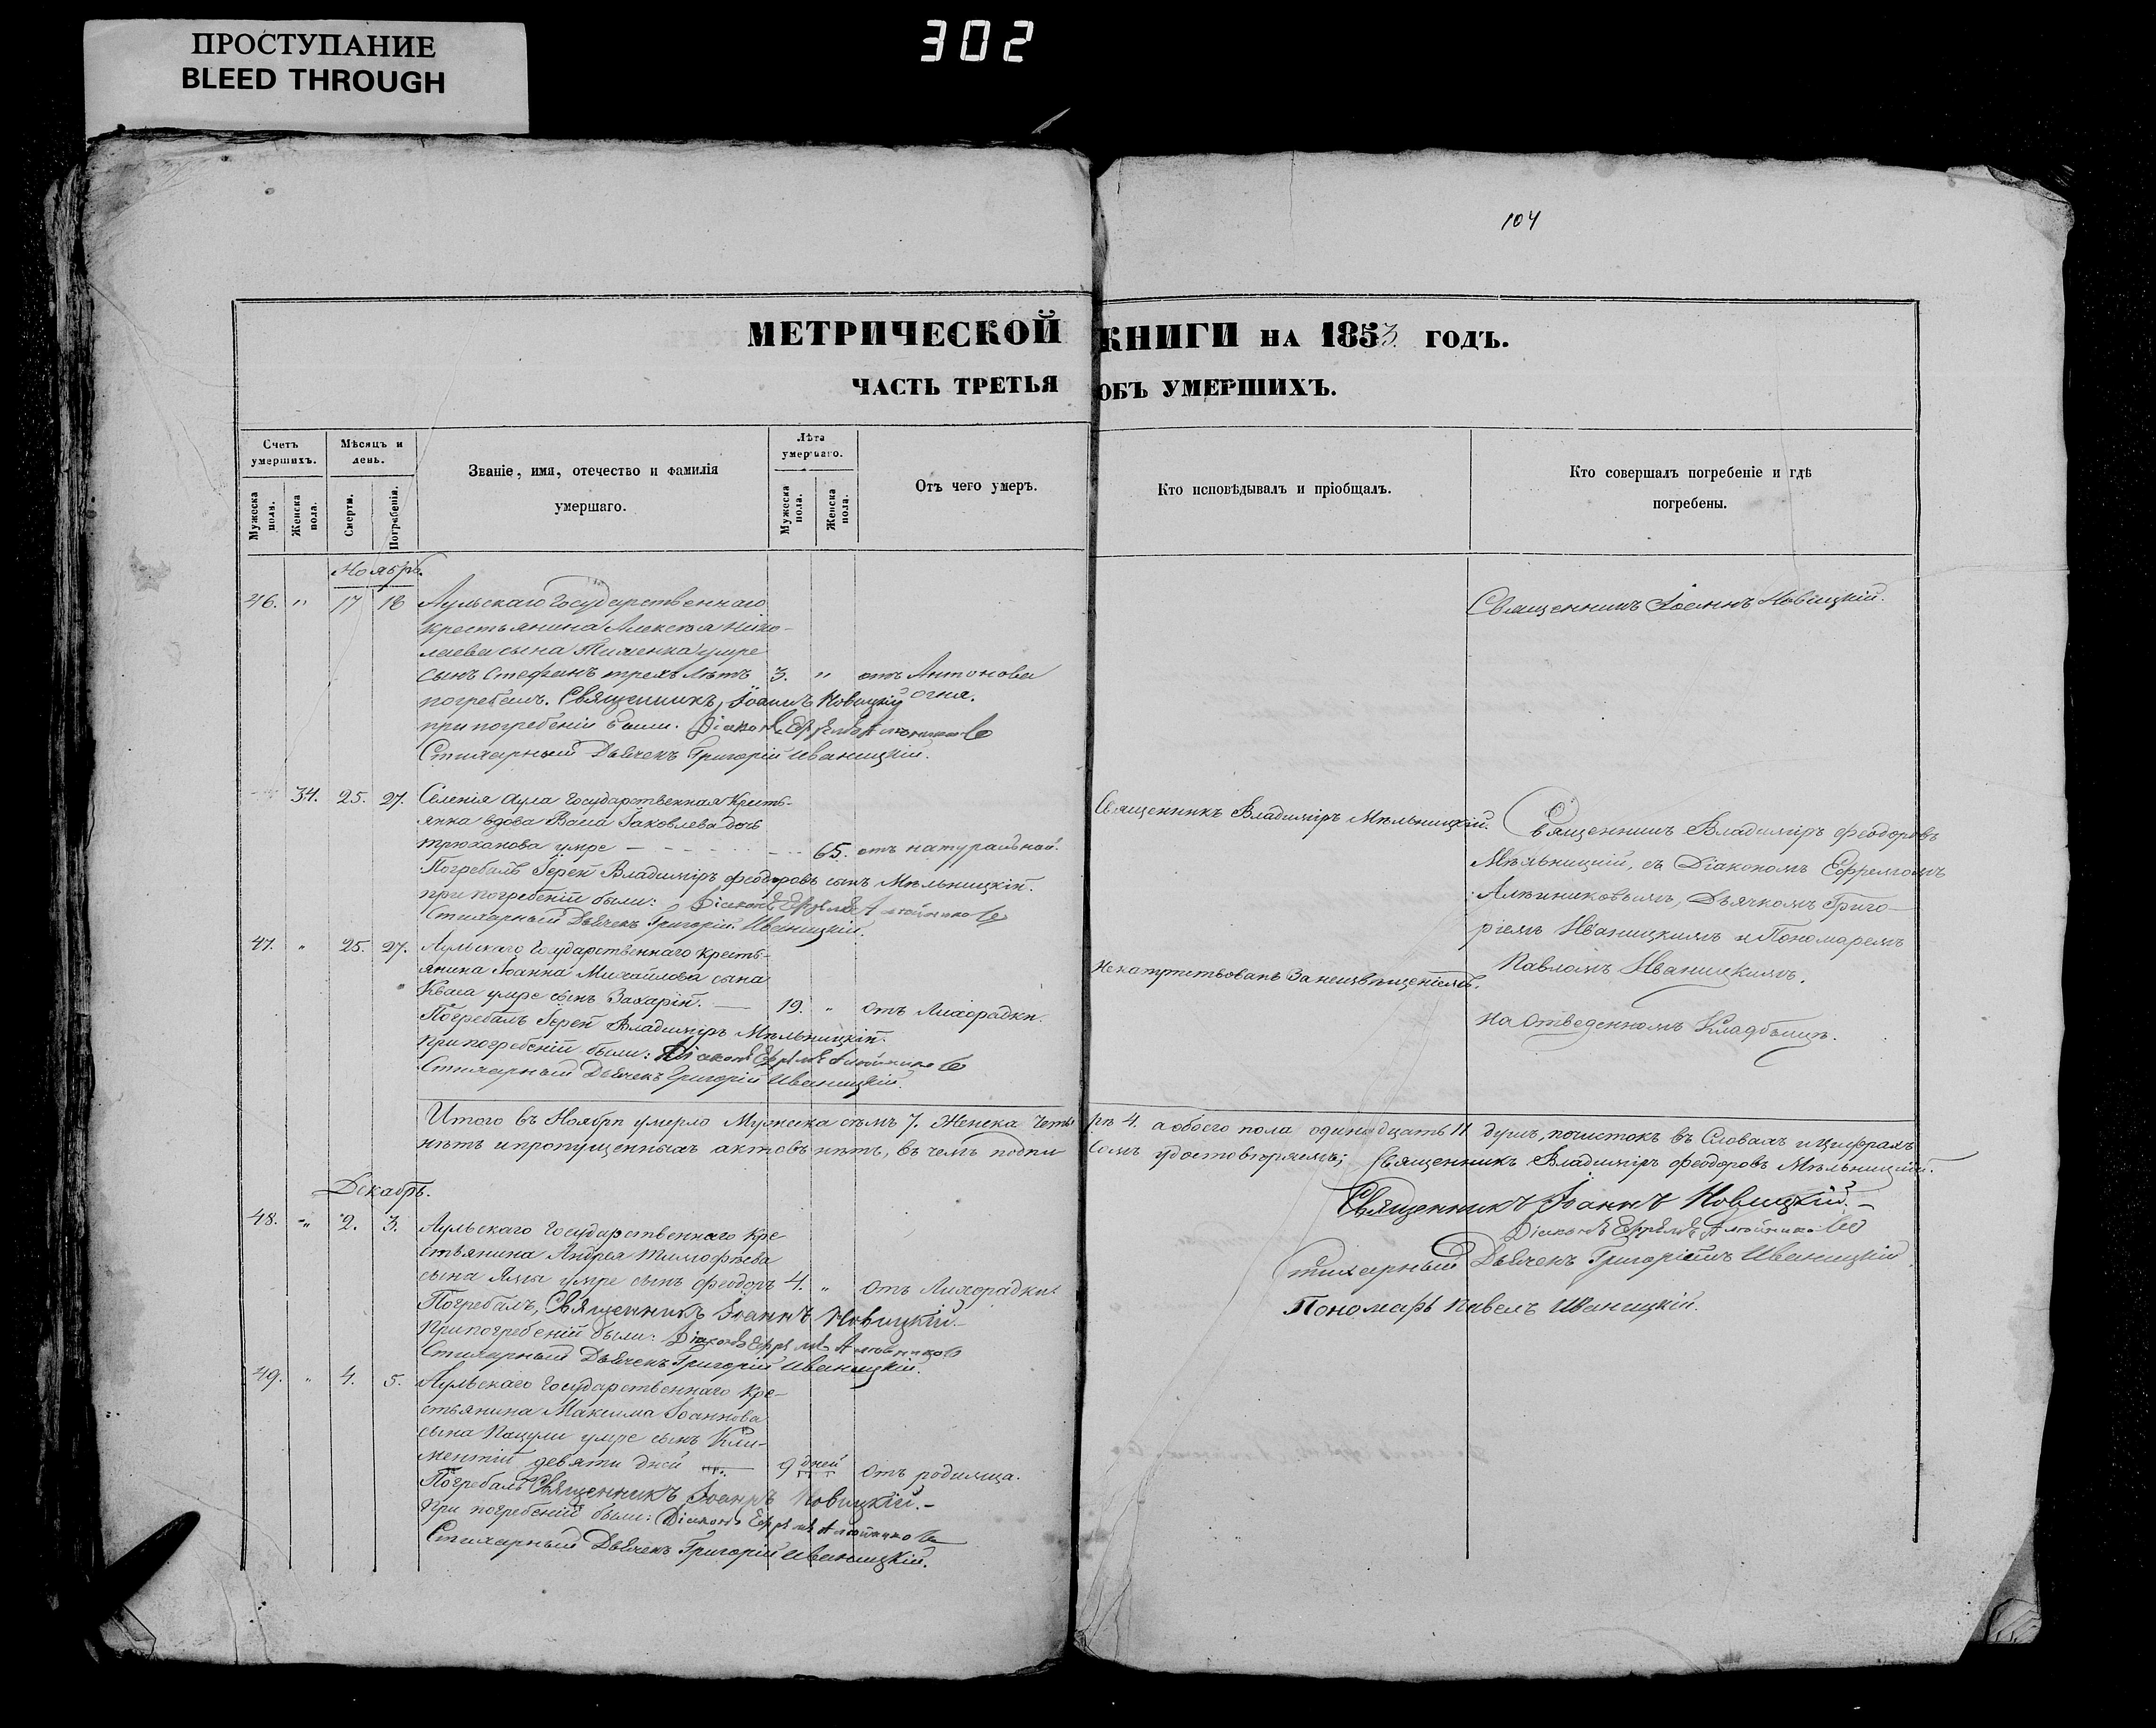 ПРОСТУПАНИЕ
BLEED THROUGH
302
104
МЕТРИЧЕСКОЙ КНИГИ НА 1853 ГОДЪ.
ЧАСТЬ ТРЕТЬЯ ОБЪ УМЕРШИХЪ.
Счетъ умершихъ.
Мужеска пола.
Женска пола.
Мѣсяцъ и день.
Смерти.
Погребенія.
Званіе, имя, отечество и фамилія
умершаго.
Лѣта умершаго.
Мужеска пола.
Женска пола.
Отъ чего умеръ.
Кто исповѣдывалъ и пріобщалъ.
Кто совершалъ погребеніе и гдѣ
погребены.
Ноябрь.
46. " 17 18 Аульскаго Государственнаго
крестьянина Алексѣя Нико-
лаева сына умре
сынъ Стефанъ трехъ лѣтъ 3. " отъ Антонова
огня.
погребалъ. Священникъ, Іоаннъ Новицкій
при погребеніи были. Діаконъ Ефремъ
Стихарный Дьячекъ Григорій Иваницкій.
Священникъ Іоаннъ Новицкій.
34. 25. 27. Селенія Аула Государственная Кресть-
янка вдова Васса Іаковлева дочь
Трюханова умре 65. отъ натуральной.
Погребалъ Іерей Владиміръ Феодоровъ сынъ Мѣльницкій.
при погребеніи были: Діаконъ Ефремъ
Стихарный Дьячекъ Григорій Иваницкій.
Священникъ Владиміръ Мѣльницкій.
Священникъ Владиміръ Феодоровъ
Мѣльницкій, съ Діакономъ Ефремомъ
Дьячкомъ Григо-
ріемъ Иваницкимъ и Пономаремъ
Павломъ Иваницкимъ.
На Отведенномъ Кладбищѣ.
47. " 25. 27. Аульскаго Государственнаго кресть-
янина Іоанна Михайлова сына
Кваса умре сынъ Захарій. 19. " Отъ Лихорадки.
Погребалъ Іерей Владиміръ Мѣльницкій.
при погребеніи были: Діаконъ Ефремъ
Стихарный Дьячекъ Григорій Иваницкій.
Не напутствованъ За неизвѣщеніемъ.
Итого въ Ноябрѣ умерло Мужеска семь 7. Женска Четыре 4. а обоего пола одинадцать 11 душъ, почистокъ въ Словахъ и Цифрахъ
нѣтъ и пропущенныхъ актовъ нѣтъ, въ чемъ подписомъ удостовѣряемъ; Священникъ Владиміръ Феодоровъ Мѣльницкій.
Священникъ Іоаннъ Новицкій.
Діаконъ Ефремъ
Стихарный Дьячекъ Григорій Иваницкій
Пономарь Павелъ Иваницкій.
Декабрь.
48. " 2. 3. Аульскаго Государственнаго Кре-
стьянина Андрея Тимофѣева
сына Ямы умре сынъ Феодоръ 4. " Отъ Лихорадки.
Погребалъ, Священникъ Іоаннъ Новицкій
При погребеніи были: Діаконъ Ефремъ
Стихарный Дьячекъ Григорій Иваницкій.
49. " 4. 5. Аульскаго Государственнаго Кре-
стьянина Максима Іоаннова
сына Пацули умре сынъ Кли-
ментій девяти дней 9 дней Отъ родимца.
Погребалъ Священникъ Іоаннъ Новицкій.
При погребеніи были: Діаконъ Ефремъ
Стихарный Дьячекъ Григорій Иваницкій.